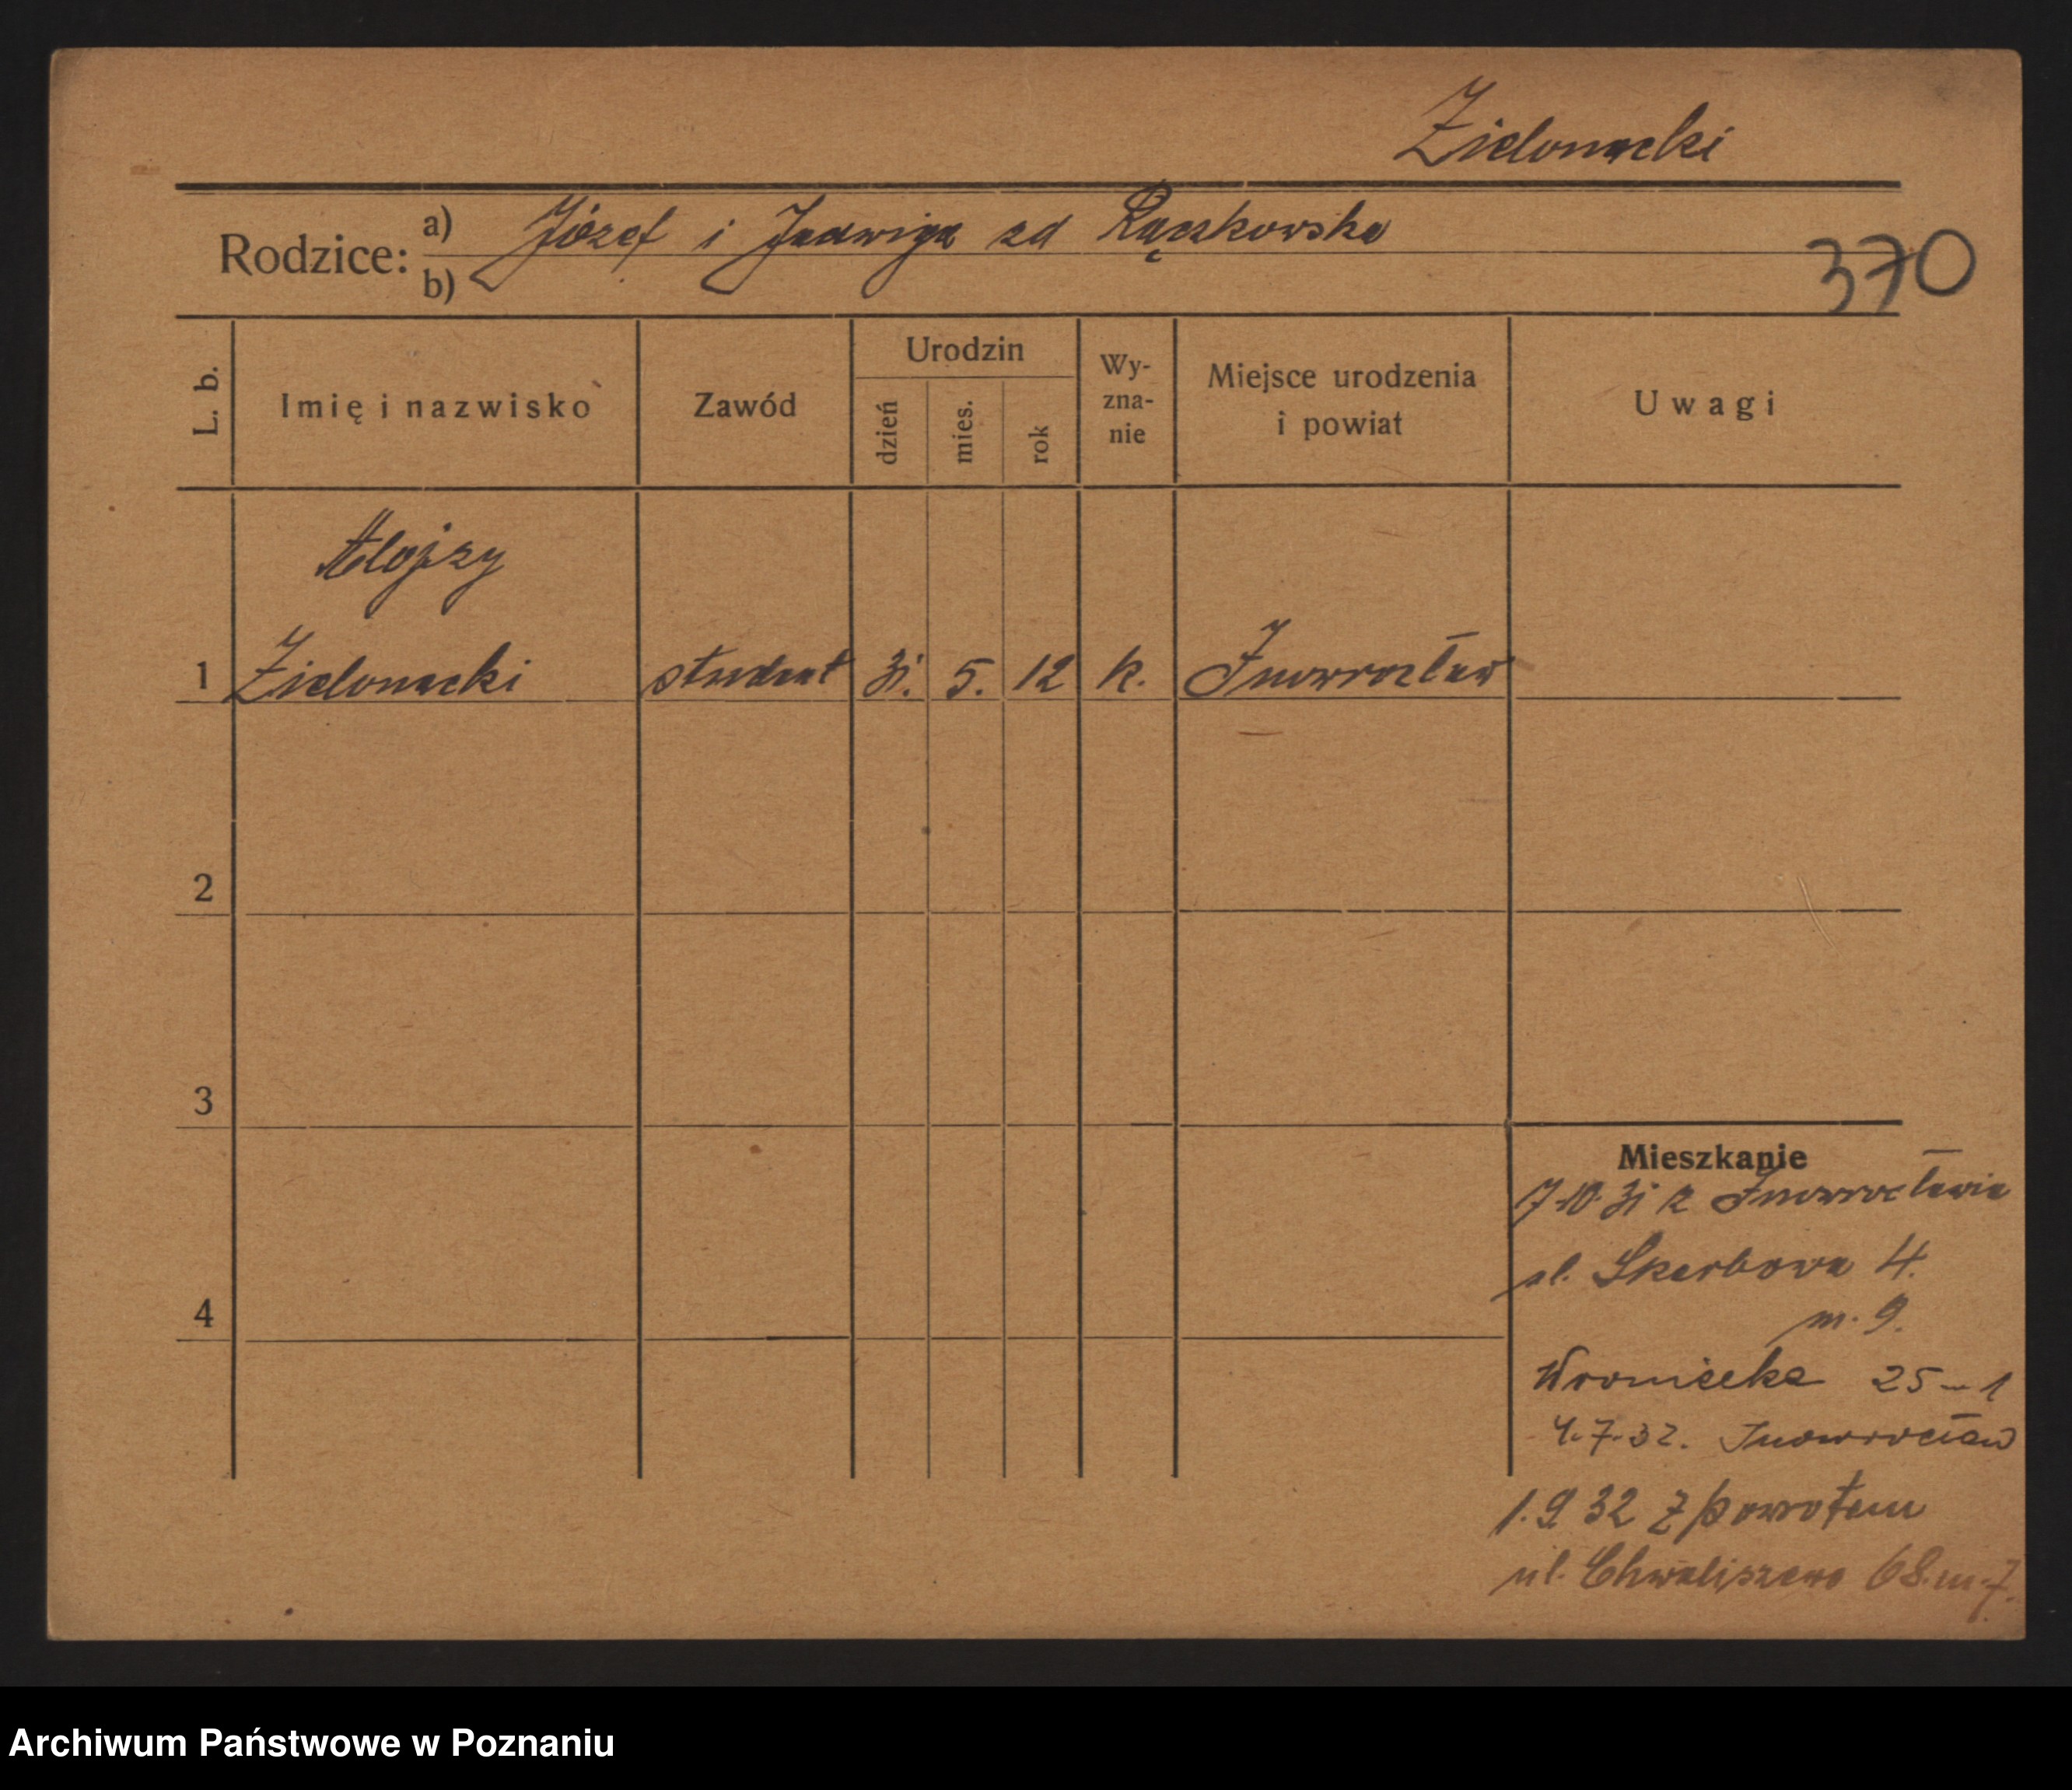 Zielonacki
Rodzice: a) Józef i Jadwiga zd Rączkowska
b)
370
L. b. Imię i nazwisko Zawód Urodzin dzień mies. rok Wy-zna-nie Miejsce urodzenia i powiat Uwagi
Alojzy
1 Zielonacki student 31. 5. 12 k. Inowrocław
2
3
4
Mieszkanie
7.10.31 z Inowrocławia
ul. Skarbowa 4.
m. 9.
Wroniecka 25 - 1
4.7.32. Inowrocław
1.9 32 z powrotem
ul. Chwaliszewo 68.m.7.
Archiwum Państwowe w Poznaniu